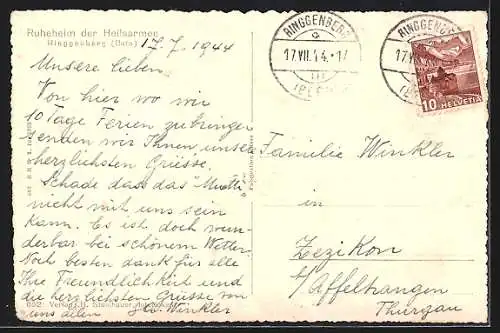 Ruheheim der Heilsarmee
Ringgenberg (Bern)
17.7.1944
Unsere lieben.
Von hier wo wir
10 Tage Ferien zubringen
senden wir Ihnen unsere
herzlichsten Grüsse.
Schade dass das "Mutti"
nicht mit uns sein
kann. Es ist doch wun-
derbar bei schönem Wetter.
Noch besten dank für alle
Ihre Freundlichkeit und
die herzlichsten Grüsse von
uns allen
Winkler
652 Verlag H. Steinhauer, Interlaken
RINGGENBERG
17.VII.44.-17
(BERN)
RINGGENBERG
17.VII
10 HELVETIA
Familie Winkler
in
Zezikon
b/Affeltrangen
Thurgau